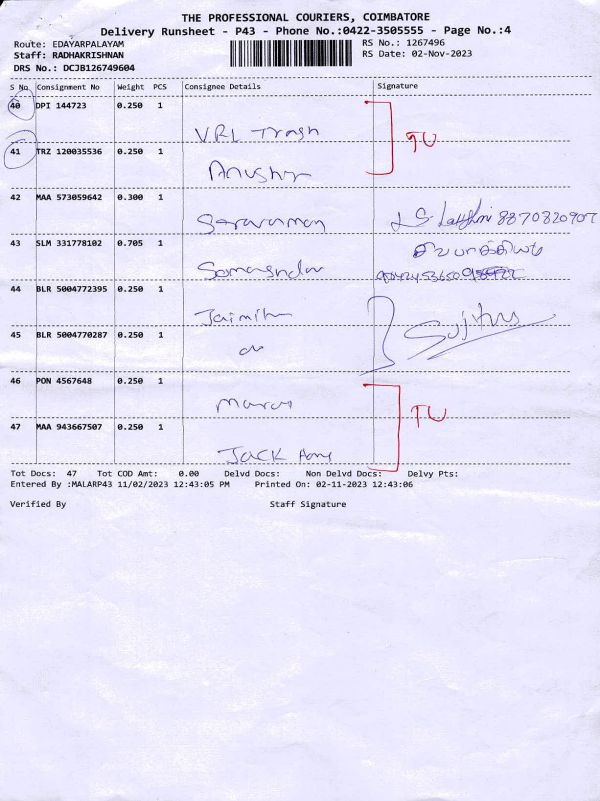 THE PROFESSIONAL COURIERS, COIMBATORE
Delivery Runsheet - P43 - Phone No.:0422-3505555 - Page No.:4
Route: EDAYARPALAYAM RS No.: 1267496
Staff: RADHAKRISHNAN RS Date: 02-Nov-2023
DRS No.: DCJB126749604
S No Consignment No Weight PCS Consignee Details Signature
40 DPI 144723 0.250 1
VRL Trash TU
41 TRZ 120035536 0.250 1
Anushy
42 MAA 573059642 0.300 1
Saravanan 8870820907
43 SLM 331778102 0.705 1
44 BLR 5004772395 0.250 1
Sujitha
45 BLR 5004770287 0.250 1
46 PON 4567648 0.250 1
TU
47 MAA 943667507 0.250 1
Jack
Tot Docs: 47 Tot COD Amt: 0.00 Delvd Docs: Non Delvd Docs: Delvy Pts:
Entered By :MALARP43 11/02/2023 12:43:05 PM Printed On: 02-11-2023 12:43:06
Verified By Staff Signature